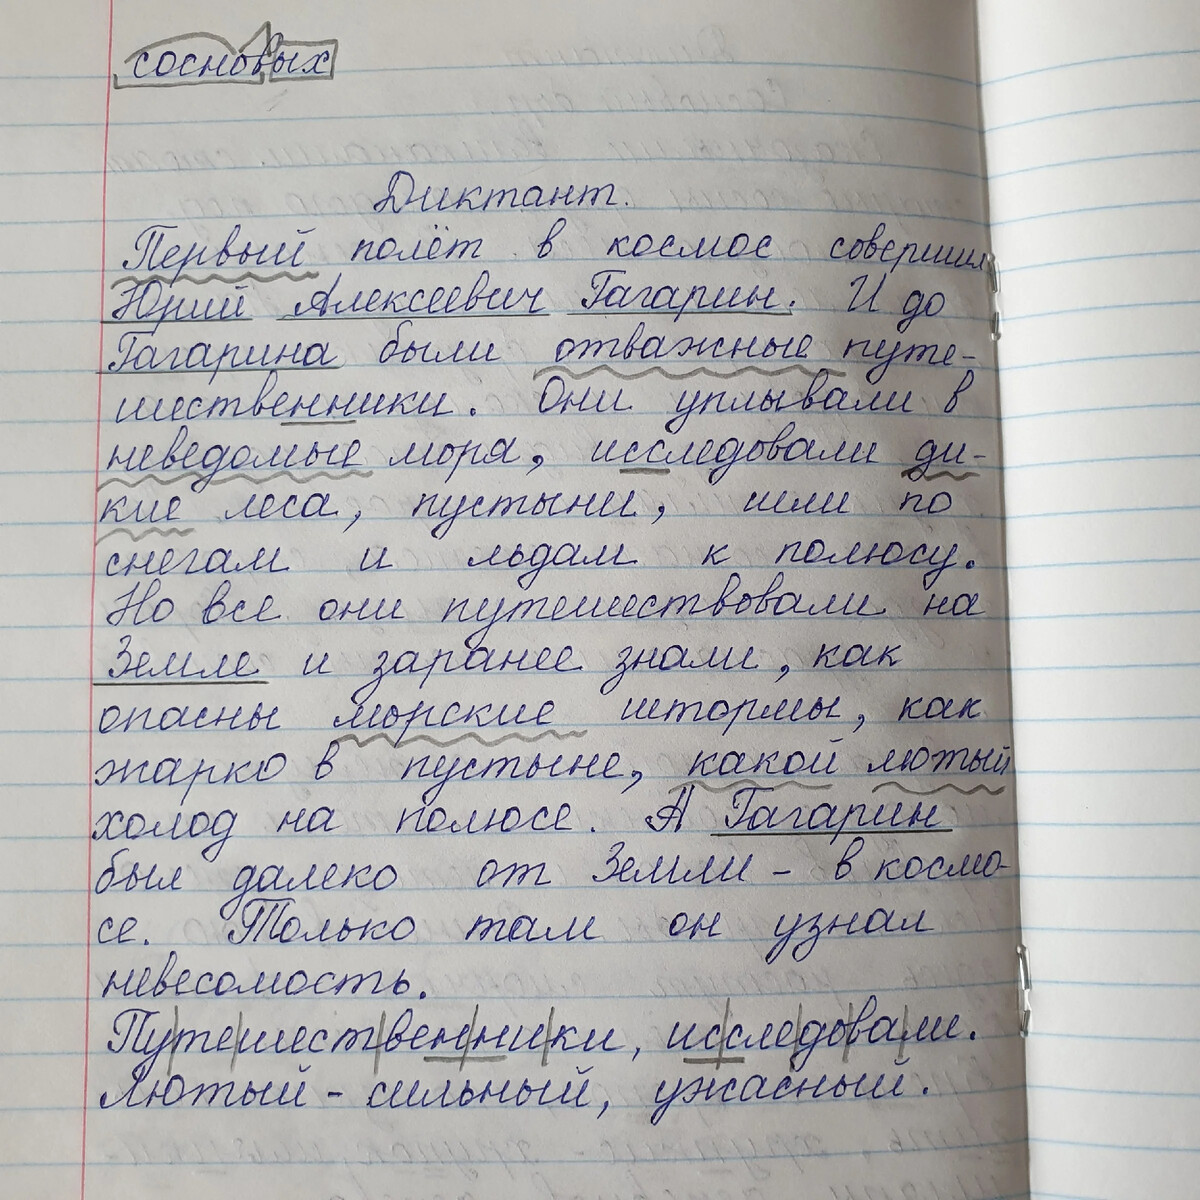 сосновых
Диктант.
Первый полёт в космос совершил
Юрий Алексеевич Гагарин. И до
Гагарина были отважные путе-
шественники. Они уплывали в
неведомые моря, исследовали ди-
кие леса, пустыни, шли по
снегам и льдам к полюсу.
Но все они путешествовали на
Земле и заранее знали, как
опасны морские штормы, как
жарко в пустыне, какой лютый
холод на полюсе. А Гагарин
был далеко от Земли - в космо-
се. Только там он узнал
невесомость.
Путешественники, исследовали.
Лютый - сильный, ужасный.